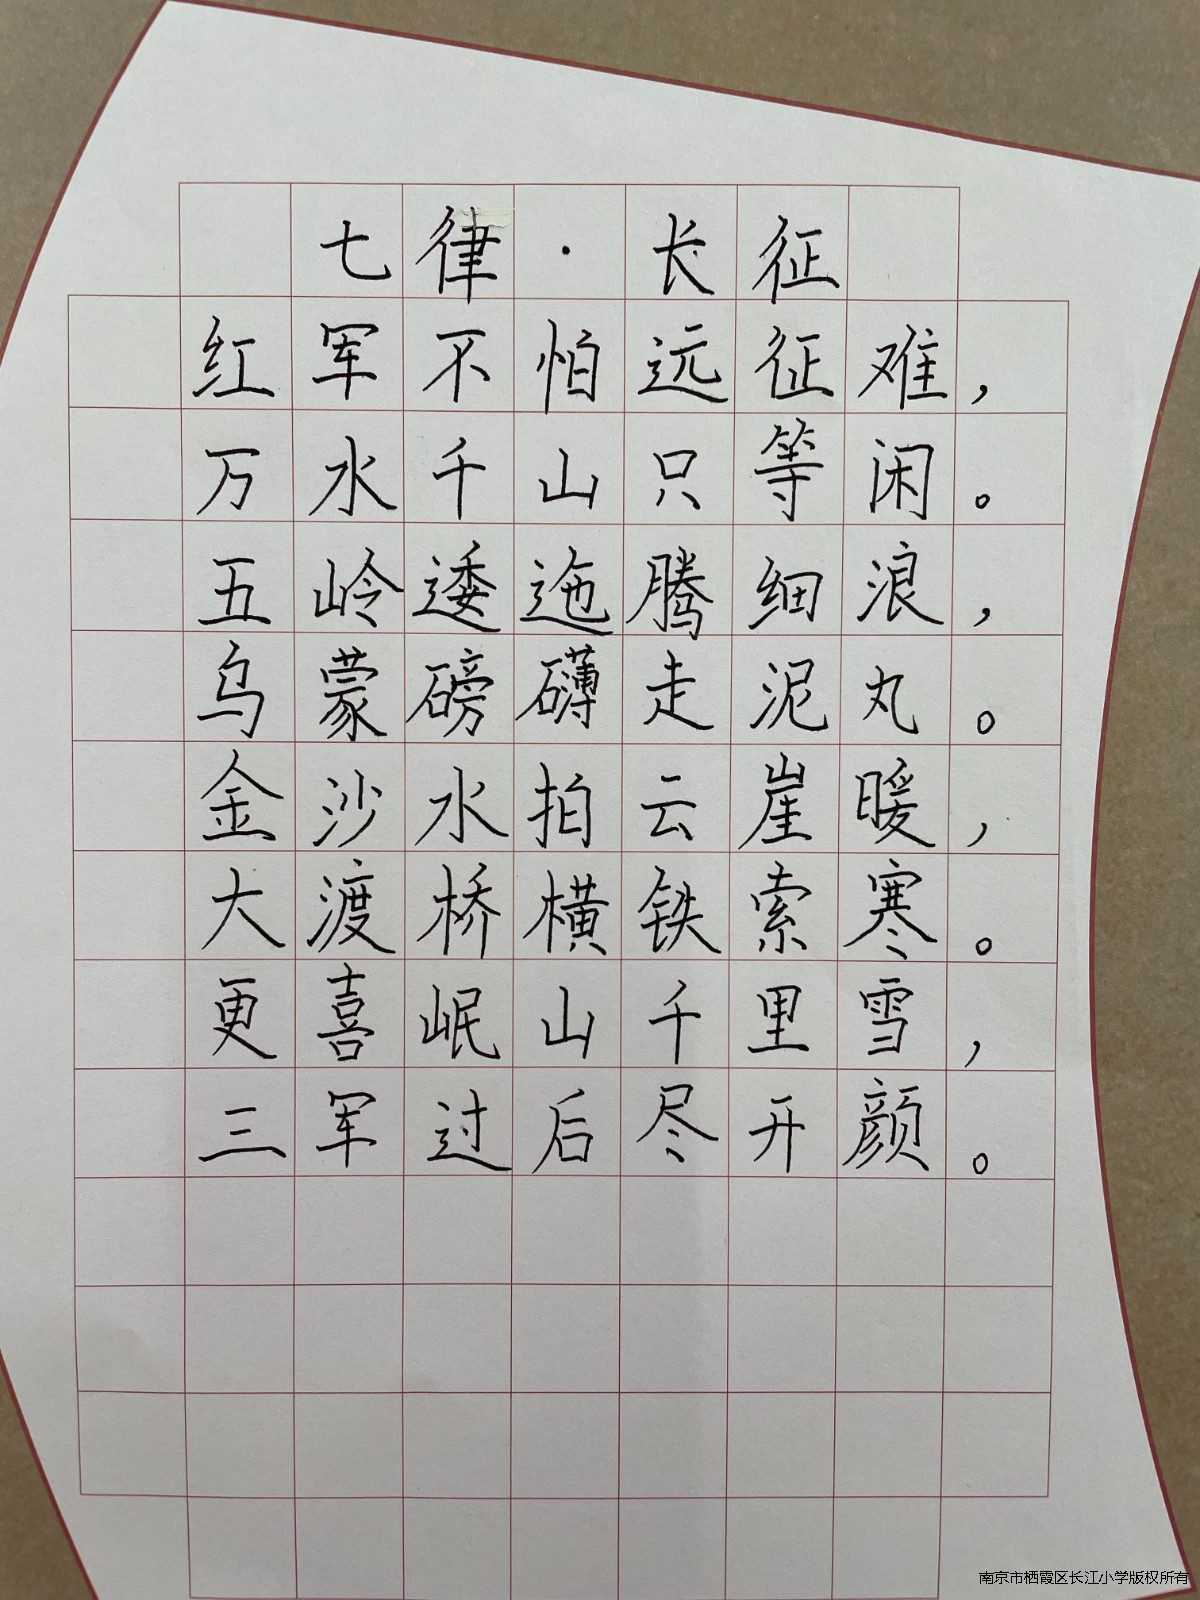 七律·长征
红军不怕远征难，
万水千山只等闲。
五岭逶迤腾细浪，
乌蒙磅礴走泥丸。
金沙水拍云崖暖，
大渡桥横铁索寒。
更喜岷山千里雪，
三军过后尽开颜。
南京市栖霞区长江小学版权所有